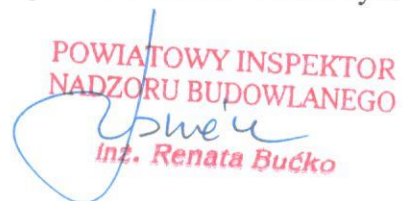 POWIATOWY INSPEKTOR
NADZORU BUDOWLANEGO
inż. Renata Bućko